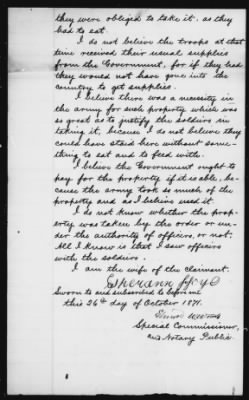 they were obliged to take it, as they
had to eat.
I do not believe the troops at that
time received their usual supplies
from the Government, for if they had
they would not have gone into the
country to get supplies.
I believe there was a necessity in
the army for such property which was
so great as to justify the soldiers in
taking it, because I do not believe they
could have staid here without some-
thing to eat and to feed with.
I believe the Government ought to
pay for the property if it is able, be-
cause the army took so much of the
property and as I believe used it.
I do not know whether the prop-
erty was taken by the order or un-
der the authority of officers, or not.
All I know is that I saw officers
with the soldiers.
I am the wife of the Claimant.
Sworn to and subscribed to before me
this 26th day of October 1871.
Special Commissioner,
and Notary Public.